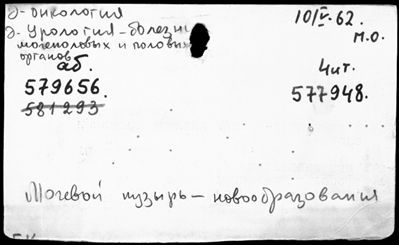 Э-Онкология
10/V-62.
Э. Урология-болезни
м.о.
мочеполовых и половых
органов
аб.
Чит.
579656.
577948.
581293
Мочевой пузырь — новообразования